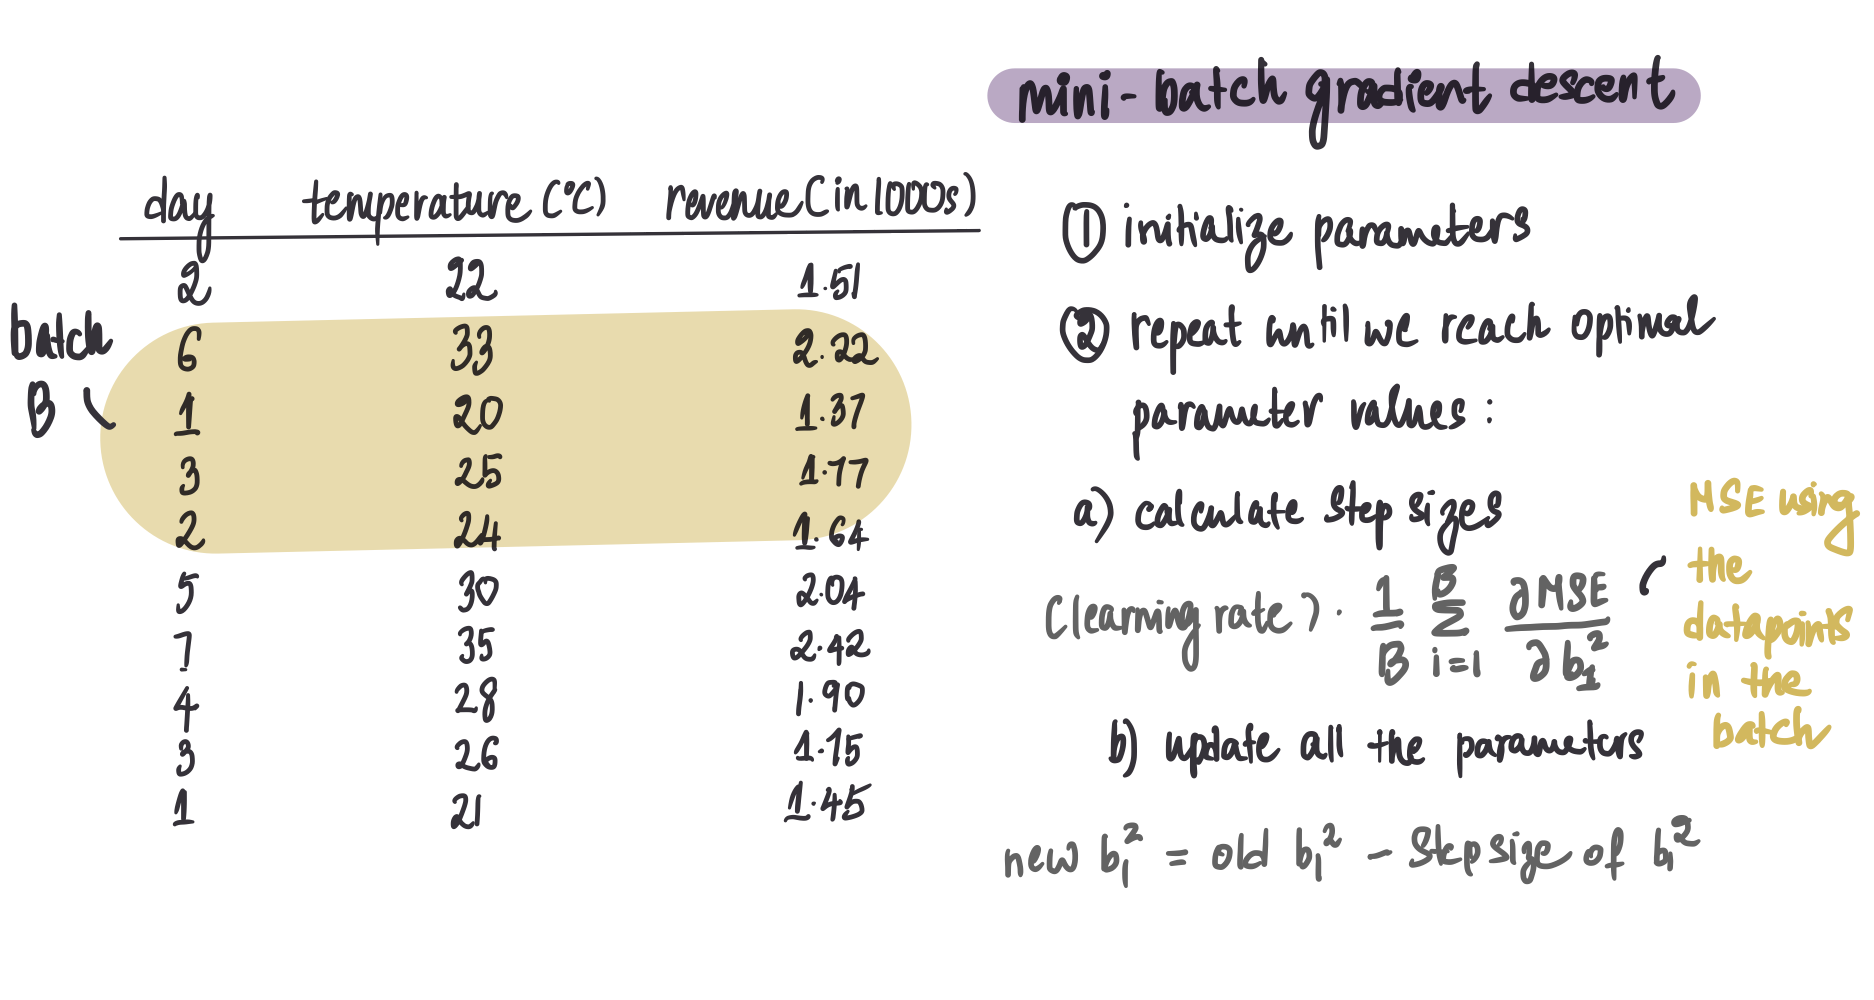 mini-batch gradient descent
day temperature (°C) revenue (in 1000s)
2 22 1.51
6 33 2.22
1 20 1.37
3 25 1.77
2 24 1.64
5 30 2.04
7 35 2.42
4 28 1.90
3 26 1.75
1 21 1.45
batch
B
① initialize parameters
② repeat until we reach optimal
parameter values:
a) calculate step sizes
(learning rate) · 1/B Σ_{i=1}^{B} ∂MSE/∂b₁²
MSE using
the
datapoints
in the
batch
b) update all the parameters
new b₁² = old b₁² - step size of b₁²